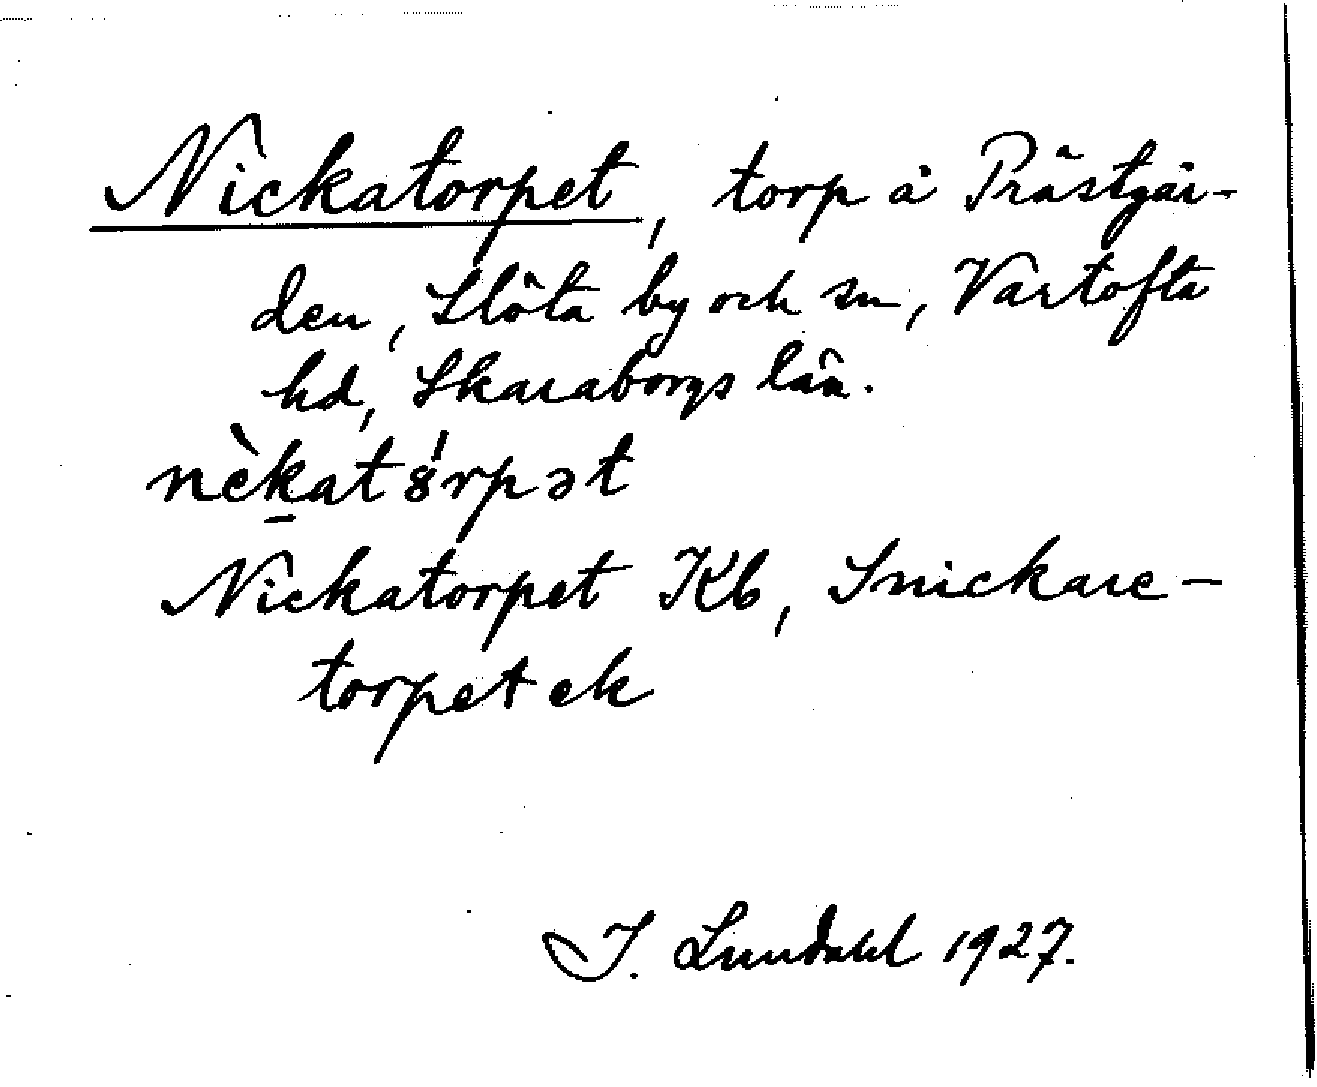 Nickatorpet, torp å Prästgår-
den, Slöta by och sn, Vartofta
hd, Skaraborgs län.
nèkat8́rpət
Nickatorpet Kb, Snickare-
torpet ek
I. Lundahl 1927.